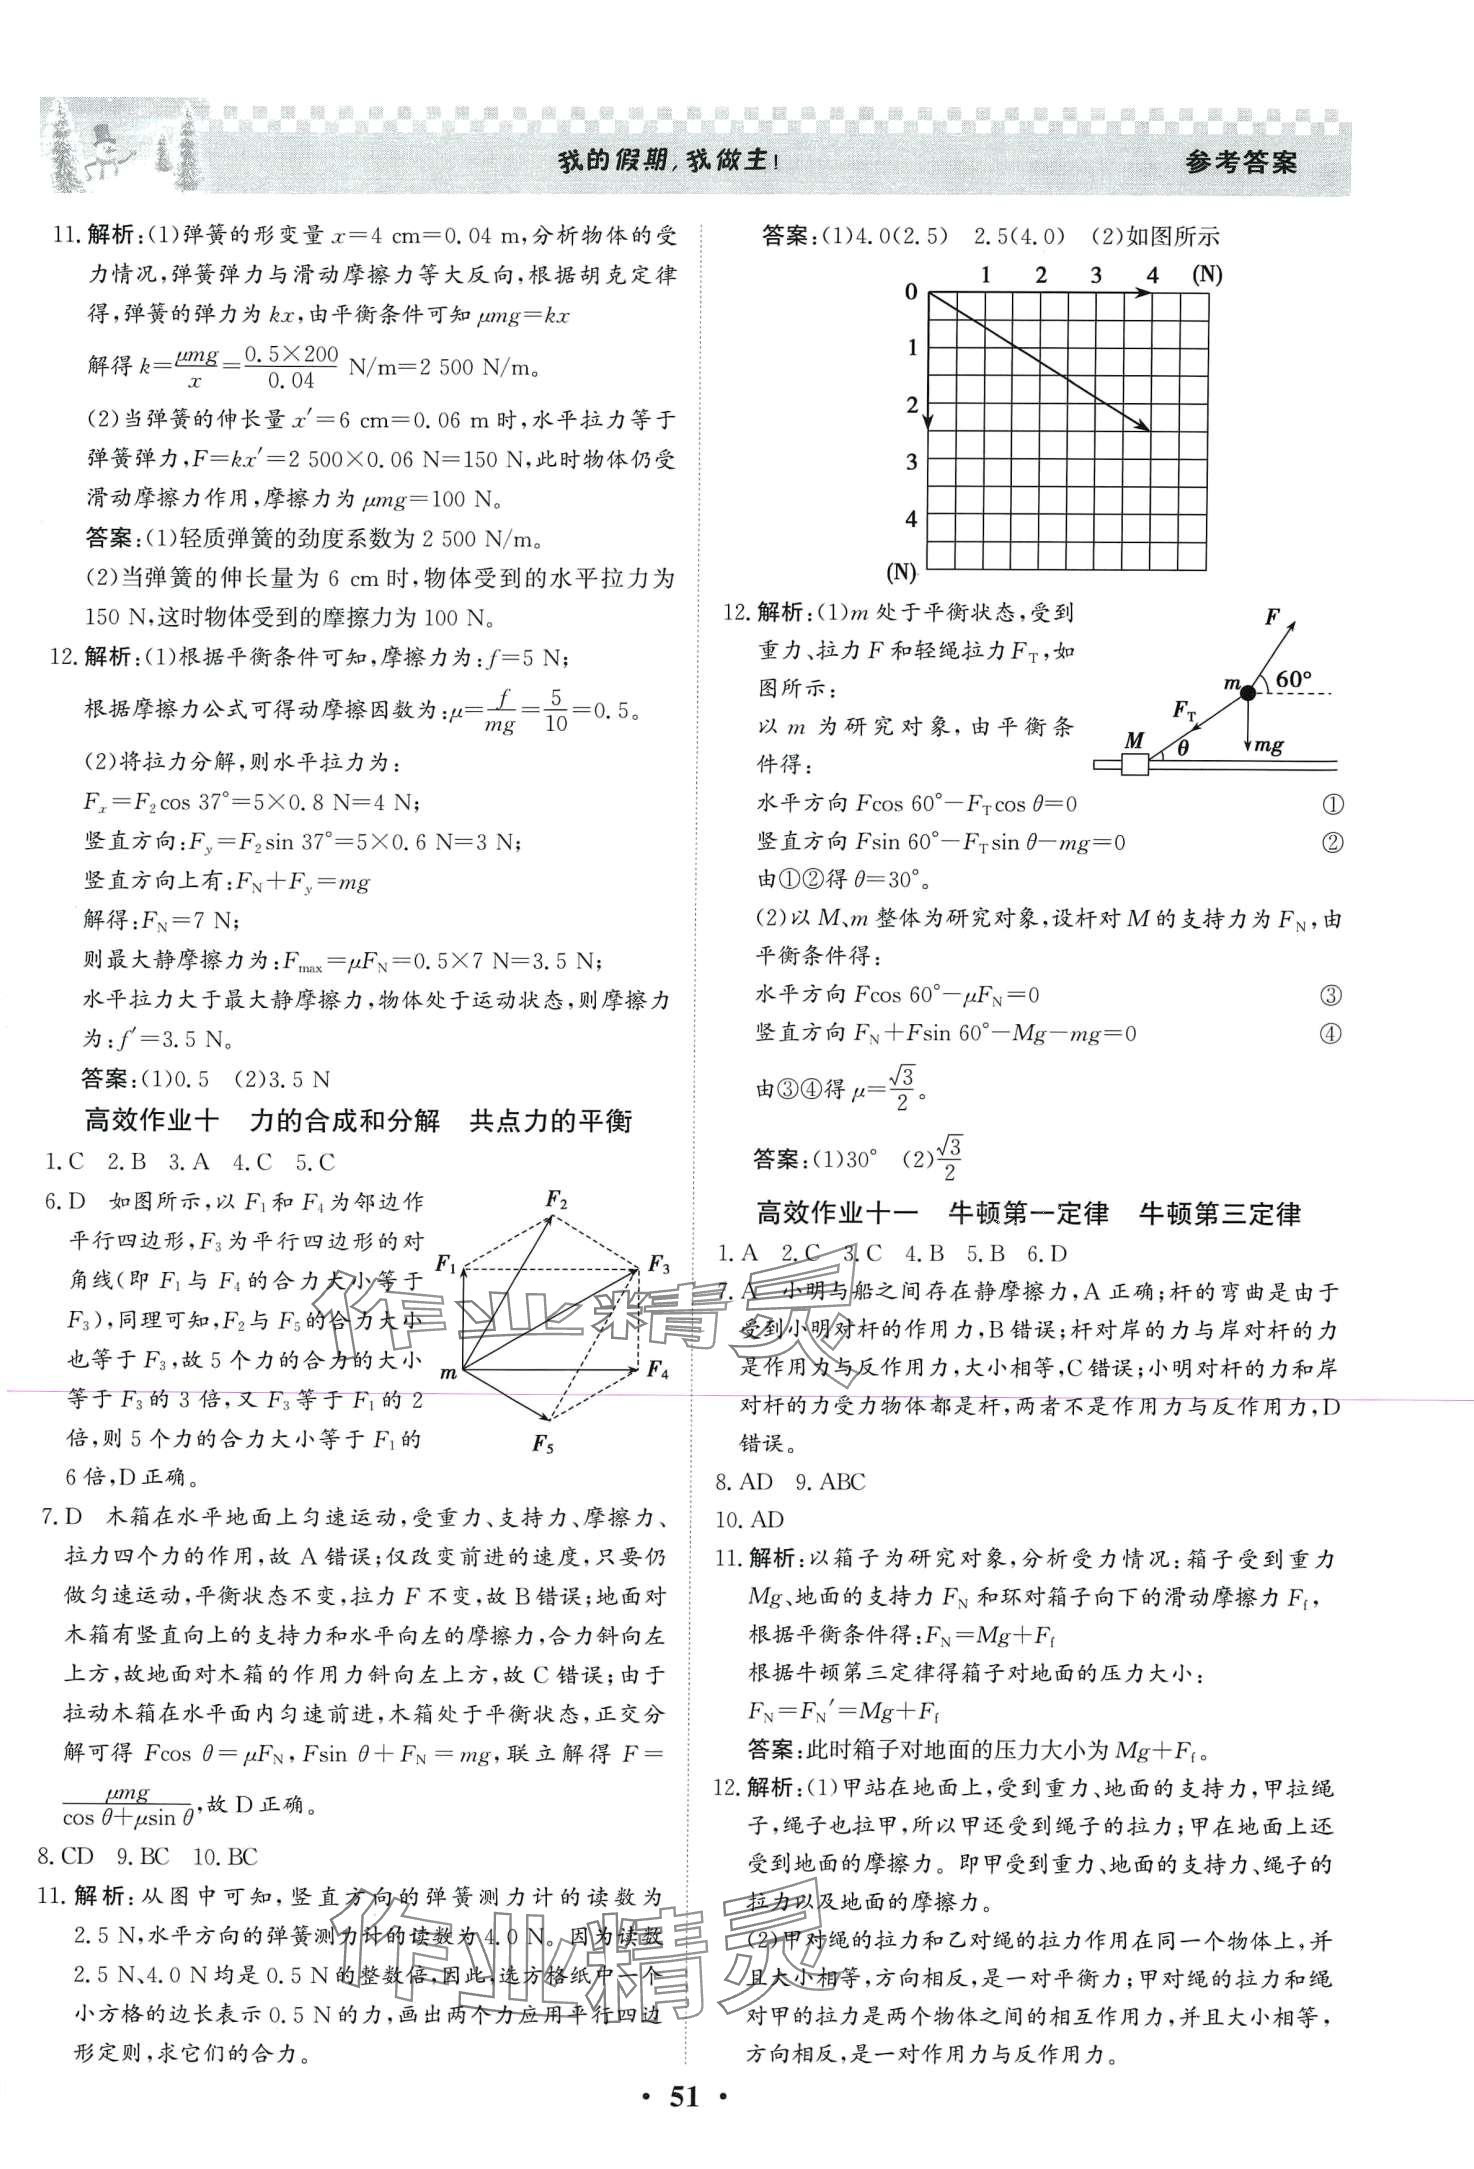 我的假期,我做主!
参考答案
11.解析:(1)弹簧的形变量 x=4 cm=0.04 m,分析物体的受
力情况,弹簧弹力与滑动摩擦力等大反向,根据胡克定律
得,弹簧的弹力为 kx,由平衡条件可知 μmg=kx
解得 k=μmg/x=0.5×200/0.04 N/m=2 500 N/m。
(2)当弹簧的伸长量 x′=6 cm=0.06 m 时,水平拉力等于
弹簧弹力,F=kx′=2 500×0.06 N=150 N,此时物体仍受
滑动摩擦力作用,摩擦力为 μmg=100 N。
答案:(1)轻质弹簧的劲度系数为 2 500 N/m。
(2)当弹簧的伸长量为 6 cm 时,物体受到的水平拉力为
150 N,这时物体受到的摩擦力为 100 N。
12.解析:(1)根据平衡条件可知,摩擦力为:f=5 N;
根据摩擦力公式可得动摩擦因数为:μ=f/mg=5/10=0.5。
(2)将拉力分解,则水平拉力为:
Fx=F2cos 37°=5×0.8 N=4 N;
竖直方向:Fy=F2sin 37°=5×0.6 N=3 N;
竖直方向上有:FN+Fy=mg
解得:FN=7 N;
则最大静摩擦力为:Fmax=μFN=0.5×7 N=3.5 N;
水平拉力大于最大静摩擦力,物体处于运动状态,则摩擦力
为:f′=3.5 N。
答案:(1)0.5 (2)3.5 N
高效作业十 力的合成和分解 共点力的平衡
1.C 2.B 3.A 4.C 5.C
6.D 如图所示,以 F1和 F4为邻边作
平行四边形,F3为平行四边形的对
角线(即 F1与 F4的合力大小等于
F3),同理可知,F2与 F5的合力大小
也等于 F3,故 5 个力的合力的大小
等于 F3的 3 倍,又 F3等于 F1的 2
倍,则 5 个力的合力大小等于 F1的
6 倍,D 正确。
F2
F1
F3
m
F4
F5
7.D 木箱在水平地面上匀速运动,受重力、支持力、摩擦力、
拉力四个力的作用,故 A 错误;仅改变前进的速度,只要仍
做匀速运动,平衡状态不变,拉力 F 不变,故 B 错误;地面对
木箱有竖直向上的支持力和水平向左的摩擦力,合力斜向左
上方,故地面对木箱的作用力斜向左上方,故 C 错误;由于
拉动木箱在水平面内匀速前进,木箱处于平衡状态,正交分
解可得 Fcos θ=μFN,Fsin θ+FN=mg,联立解得 F=
μmg/(cos θ+μsin θ),故 D 正确。
8.CD 9.BC 10.BC
11.解析:从图中可知,竖直方向的弹簧测力计的读数为
2.5 N,水平方向的弹簧测力计的读数为 4.0 N。因为读数
2.5 N、4.0 N 均是 0.5 N 的整数倍,因此,选方格纸中一个
小方格的边长表示 0.5 N 的力,画出两个力应用平行四边
形定则,求它们的合力。
答案:(1)4.0(2.5) 2.5(4.0) (2)如图所示
1 2 3 4 (N)
0
1
2
3
4
(N)
12.解析:(1)m 处于平衡状态,受到
重力、拉力 F 和轻绳拉力 FT,如
图所示:
以 m 为研究对象,由平衡条
件得:
F
m 60°
FT
M θ mg
水平方向 Fcos 60°-FTcos θ=0 ①
竖直方向 Fsin 60°-FTsin θ-mg=0 ②
由①②得 θ=30°。
(2)以 M、m 整体为研究对象,设杆对 M 的支持力为 FN,由
平衡条件得:
水平方向 Fcos 60°-μFN=0 ③
竖直方向 FN+Fsin 60°-Mg-mg=0 ④
由③④得 μ=√3/2。
答案:(1)30° (2)√3/2
高效作业十一 牛顿第一定律 牛顿第三定律
1.A 2.C 3.C 4.B 5.B 6.D
7.A 小明与船之间存在静摩擦力,A 正确;杆的弯曲是由于
受到小明对杆的作用力,B 错误;杆对岸的力与岸对杆的力
是作用力与反作用力,大小相等,C 错误;小明对杆的力和岸
对杆的力受力物体都是杆,两者不是作用力与反作用力,D
错误。
8.AD 9.ABC
10.AD
11.解析:以箱子为研究对象,分析受力情况:箱子受到重力
Mg、地面的支持力 FN 和环对箱子向下的滑动摩擦力 Ff,
根据平衡条件得:FN=Mg+Ff
根据牛顿第三定律得箱子对地面的压力大小:
FN=FN′=Mg+Ff
答案:此时箱子对地面的压力大小为 Mg+Ff。
12.解析:(1)甲站在地面上,受到重力、地面的支持力,甲拉绳
子,绳子也拉甲,所以甲还受到绳子的拉力;甲在地面上还
受到地面的摩擦力。即甲受到重力、地面的支持力、绳子的
拉力以及地面的摩擦力。
(2)甲对绳的拉力和乙对绳的拉力作用在同一个物体上,并
且大小相等,方向相反,是一对平衡力;甲对绳的拉力和绳
对甲的拉力是两个物体之间的相互作用力,并且大小相等,
方向相反,是一对作用力与反作用力。
作业精灵
作业精灵
· 51 ·